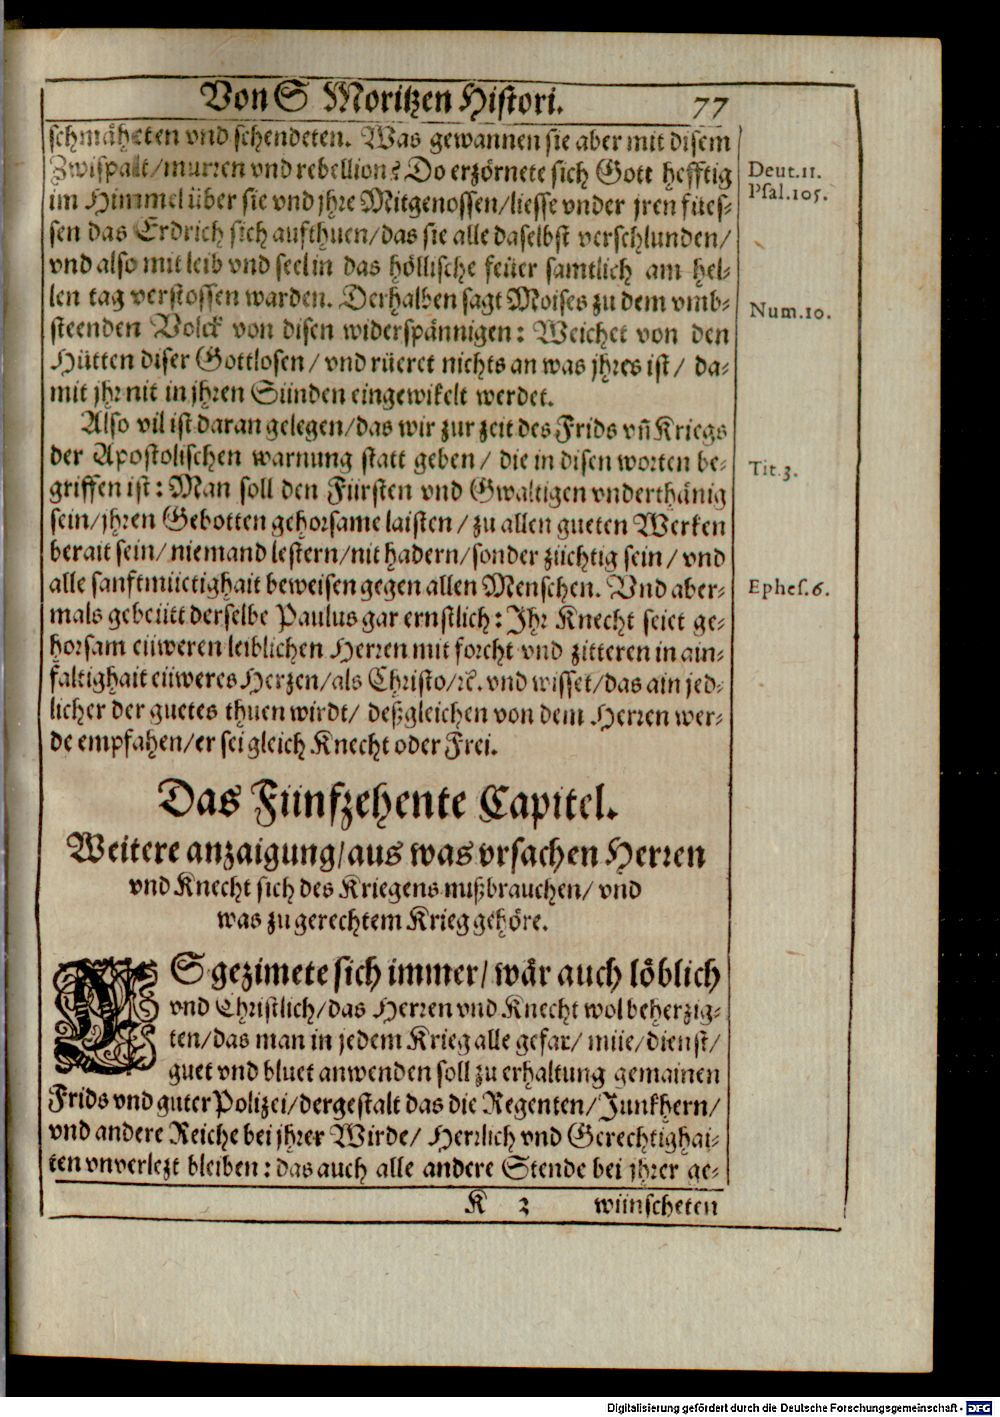 Von S Moritzen Histori. 77
schmäheten vnd schendeten. Was gewannen sie aber mit disem
Zwispalt/murren vnd rebellion? Do erzörnete sich Gott hefftig
im Himmel über sie vnd jhre Mitgenossen/liesse vnder jren fües-
sen das Erdrich sich aufthuen/das sie alle daselbst verschlunden/
vnd also mit leib vnd seel in das höllische feüer samtlich am hel-
len tag verstossen warden. Derhalben sagt Moises zu dem vmb-
steenden Volck von disen widerspännigen: Weichet von den
Hütten diser Gottlosen/ vnd rüeret nichts an was jhres ist/ da-
mit jhr nit in jhren Sünden eingewikelt werdet.
Deut.11.
Psal.105.
Num.10.
Also vil ist daran gelegen/das wir zur zeit des Frids vñ Kriegs
der Apostolischen warnung statt geben/ die in disen worten be-
griffen ist: Man soll den Fürsten vnd Gwaltigen vnderthänig
sein/jhren Gebotten gehorsame laisten/ zu allen gueten Werken
berait sein/ niemand lestern/nit hadern/sonder züchtig sein/ vnd
alle sanftmüetighait beweisen gegen allen Menschen. Vnd aber-
mals gebeütt derselbe Paulus gar ernstlich: Jhr Knecht seiet ge-
horsam eüweren leiblichen Herren mit forcht vnd zitteren in ain-
faltighait eüweres Herzen/als Christo/ꝛc. vnd wisset/das ain jed-
licher der guetes thuen wirdt/ deßgleichen von dem Herren wer-
de empfahen/er sei gleich Knecht oder Frei.
Tit.3.
Ephes.6.
Das Fünfzehente Capitel.
Weitere anzaigung/aus was vrsachen Herren
vnd Knecht sich des Kriegens mißbrauchen/ vnd
was zu gerechtem Krieg gehöre.
ES gezimete sich immer/ wär auch löblich
vnd Christlich/das Herren vnd Knecht wol beherzig-
ten/das man in jedem Krieg alle gefar/ müe/dienst/
guet vnd bluet anwenden soll zu erhaltung gemainen
Frids vnd guter Polizei/dergestalt das die Regenten/Junkhern/
vnd andere Reiche bei jhrer Wirde/ Herrlich vnd Gerechtighai-
ten vnverlezt bleiben: das auch alle andere Stende bei jhrer ge-
K 3 wünscheten
Digitalisierung gefördert durch die Deutsche Forschungsgemeinschaft - DFG